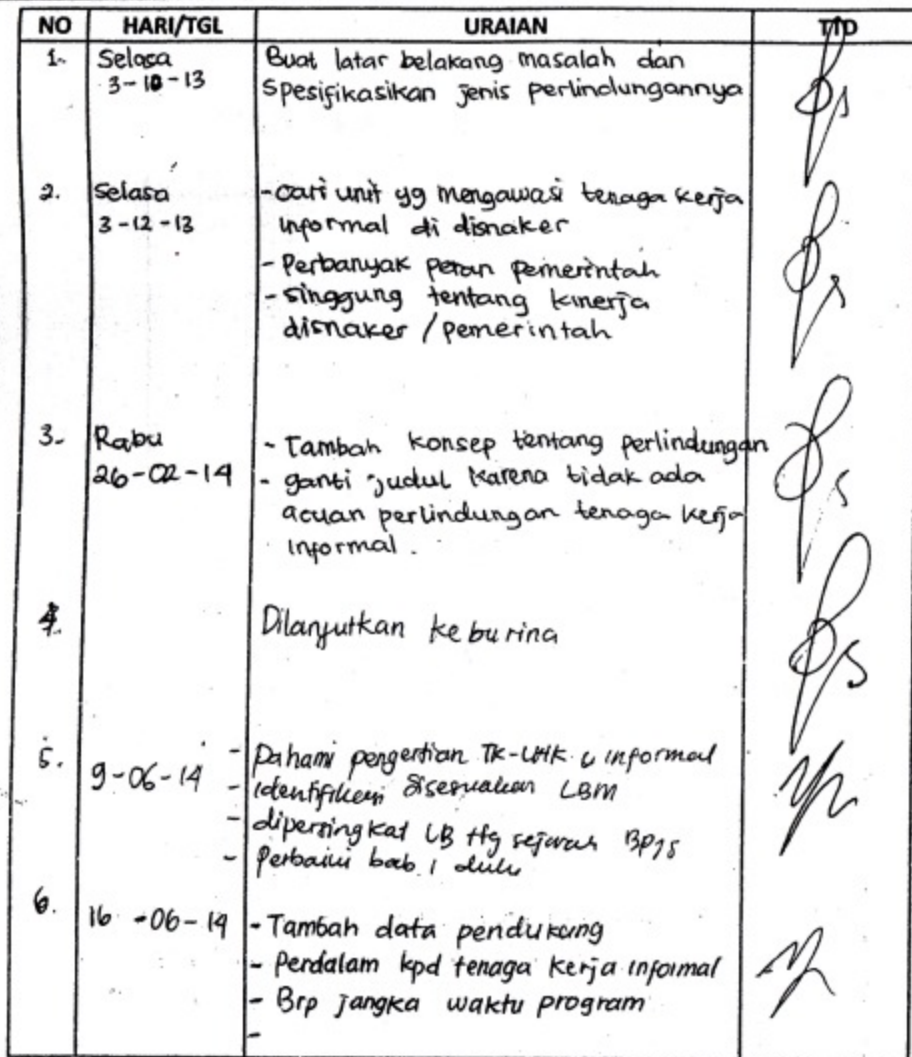 NO HARI/TGL URAIAN TTD
1. Selasa Buat latar belakang masalah dan
3-10-13 Spesifikasikan jenis perlindungannya
2. Selasa - cari unit yg mengawasi tenaga kerja
3-12-13 informal di disnaker
- Perbanyak peran pemerintah
- singgung tentang kinerja
disnaker / pemerintah
3. Rabu - Tambah konsep tentang perlindungan
26-02-14 - ganti judul karena tidak ada
acuan perlindungan tenaga kerja
informal.
4. Dilanjutkan ke bu rina
5. - Pahami pengertian informal
9-06-14 - disesuaikan LBM
- dipersingkat LB ttg sejarah BPJS
- Perbaiki bab 1 dulu
6. 16-06-14 - Tambah data pendukung
- Perdalam kpd tenaga kerja informal
- Brp jangka waktu program
-